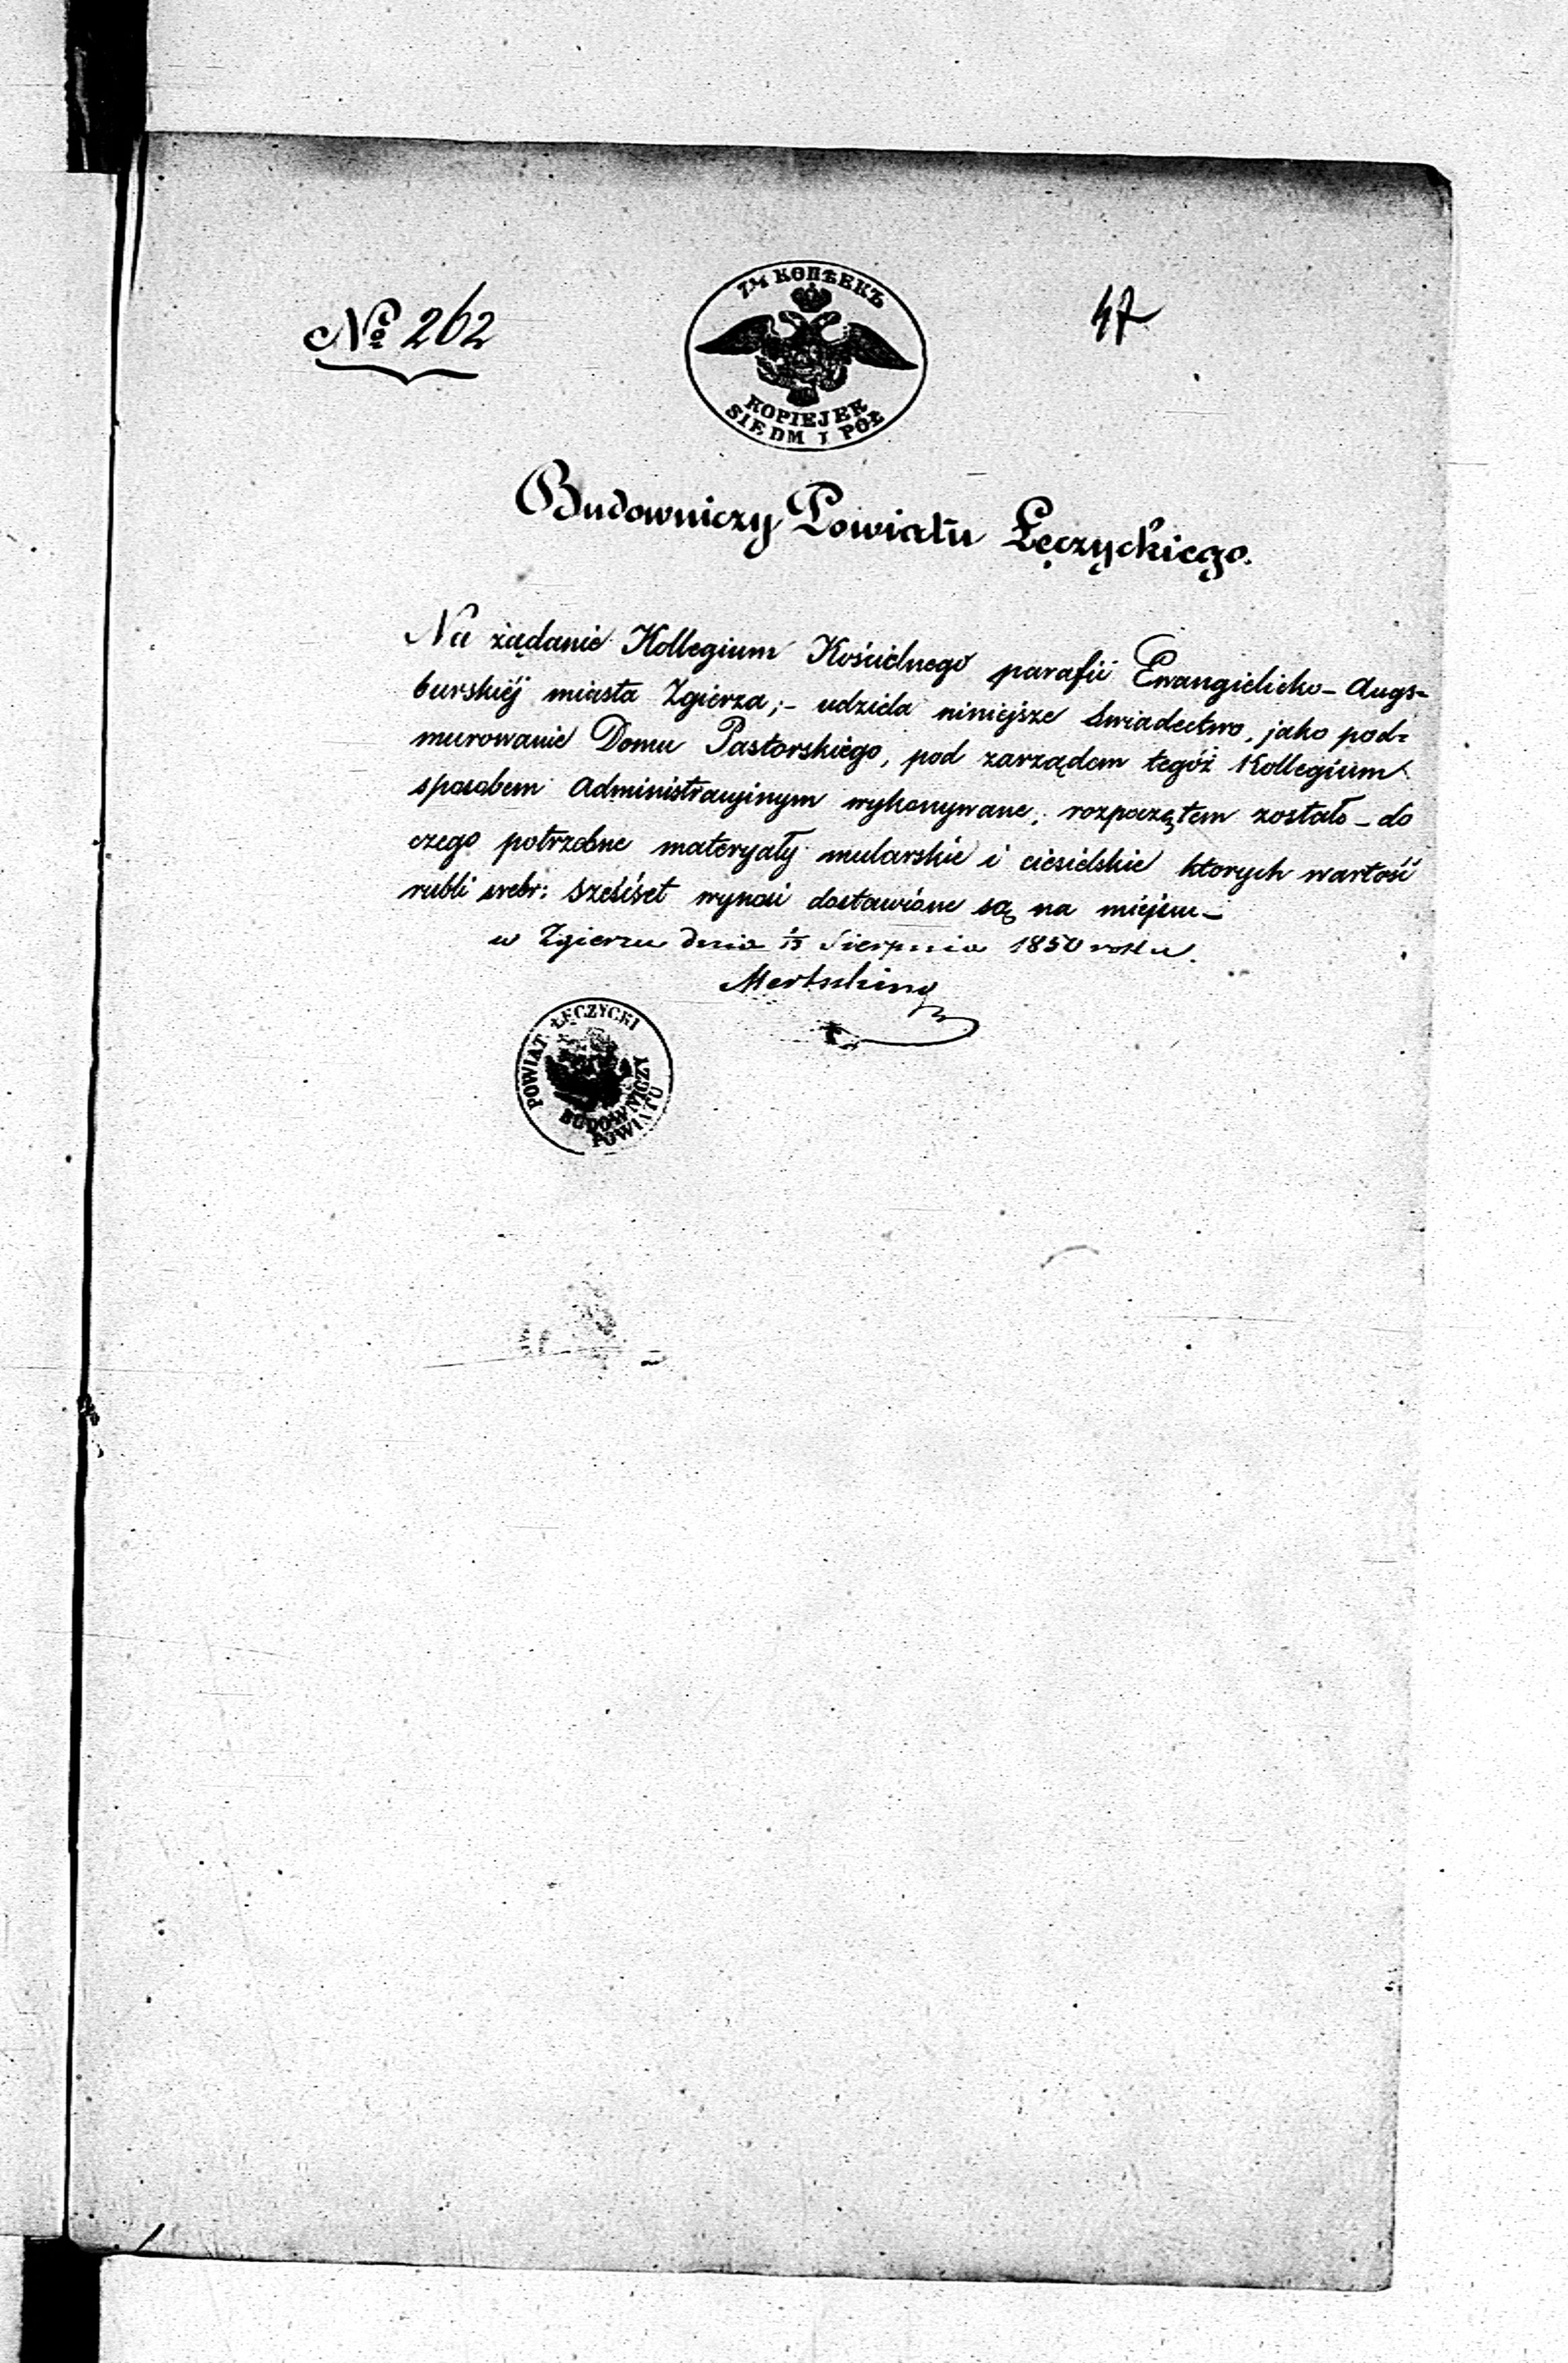 № 262
7½ КОПѢЕКЪ
KOPIEJEK
SIEDM I PÓŁ
47
Budowniczy Powiatu Łęczyckiego.
Na żądanie Kollegium Kościelnego parafii Ewangielicko – Augs=
burskiéj miasta Zgierza; – udziela niniejsze Swiadectwo, jako pod=
murowanie Domu Pastorskiego, pod zarządem tegóż Kollegium
sposobem administracyjnym wykonywane, rozpoczętem zostało – do
czego potrzebne materyały mularskie i ciesielskie ktorych wartość
rubli srebr: sześćset wynosi dostawione są na miejscu –
w Zgierzu dnia Sierpnia 1850 roku.
POWIAT ŁĘCZYCKI
BUDOWNICZY
POWIATU